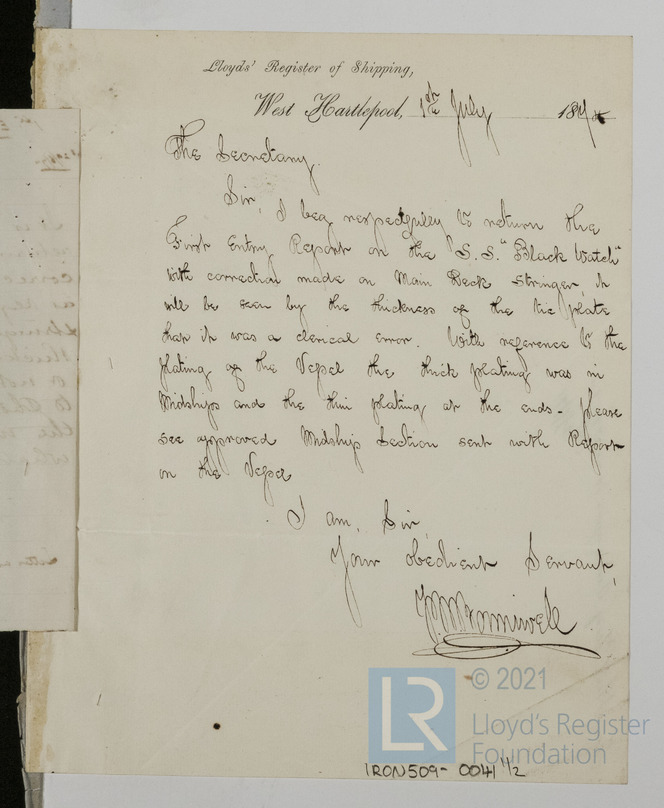 Lloyds' Register of Shipping,
West Hartlepool, 1st July 187
The Secretary.
Sir, I beg respectfully to return the
First Entry Report on the "S.S. "Black Watch"
with correction made on Main Deck Stringer, it
will be seen by the thickness of the tie plate
that it was a clerical error. With reference to the
plating of the Vessel the thick plating was in
Midships and the thin plating at the ends - please
see approved Midship Section sent with Report
on the Vessel
I am, Sir,
Your obedient Servant,
© 2021
LR
Lloyd's Register
Foundation
IRON509-0041 1/2